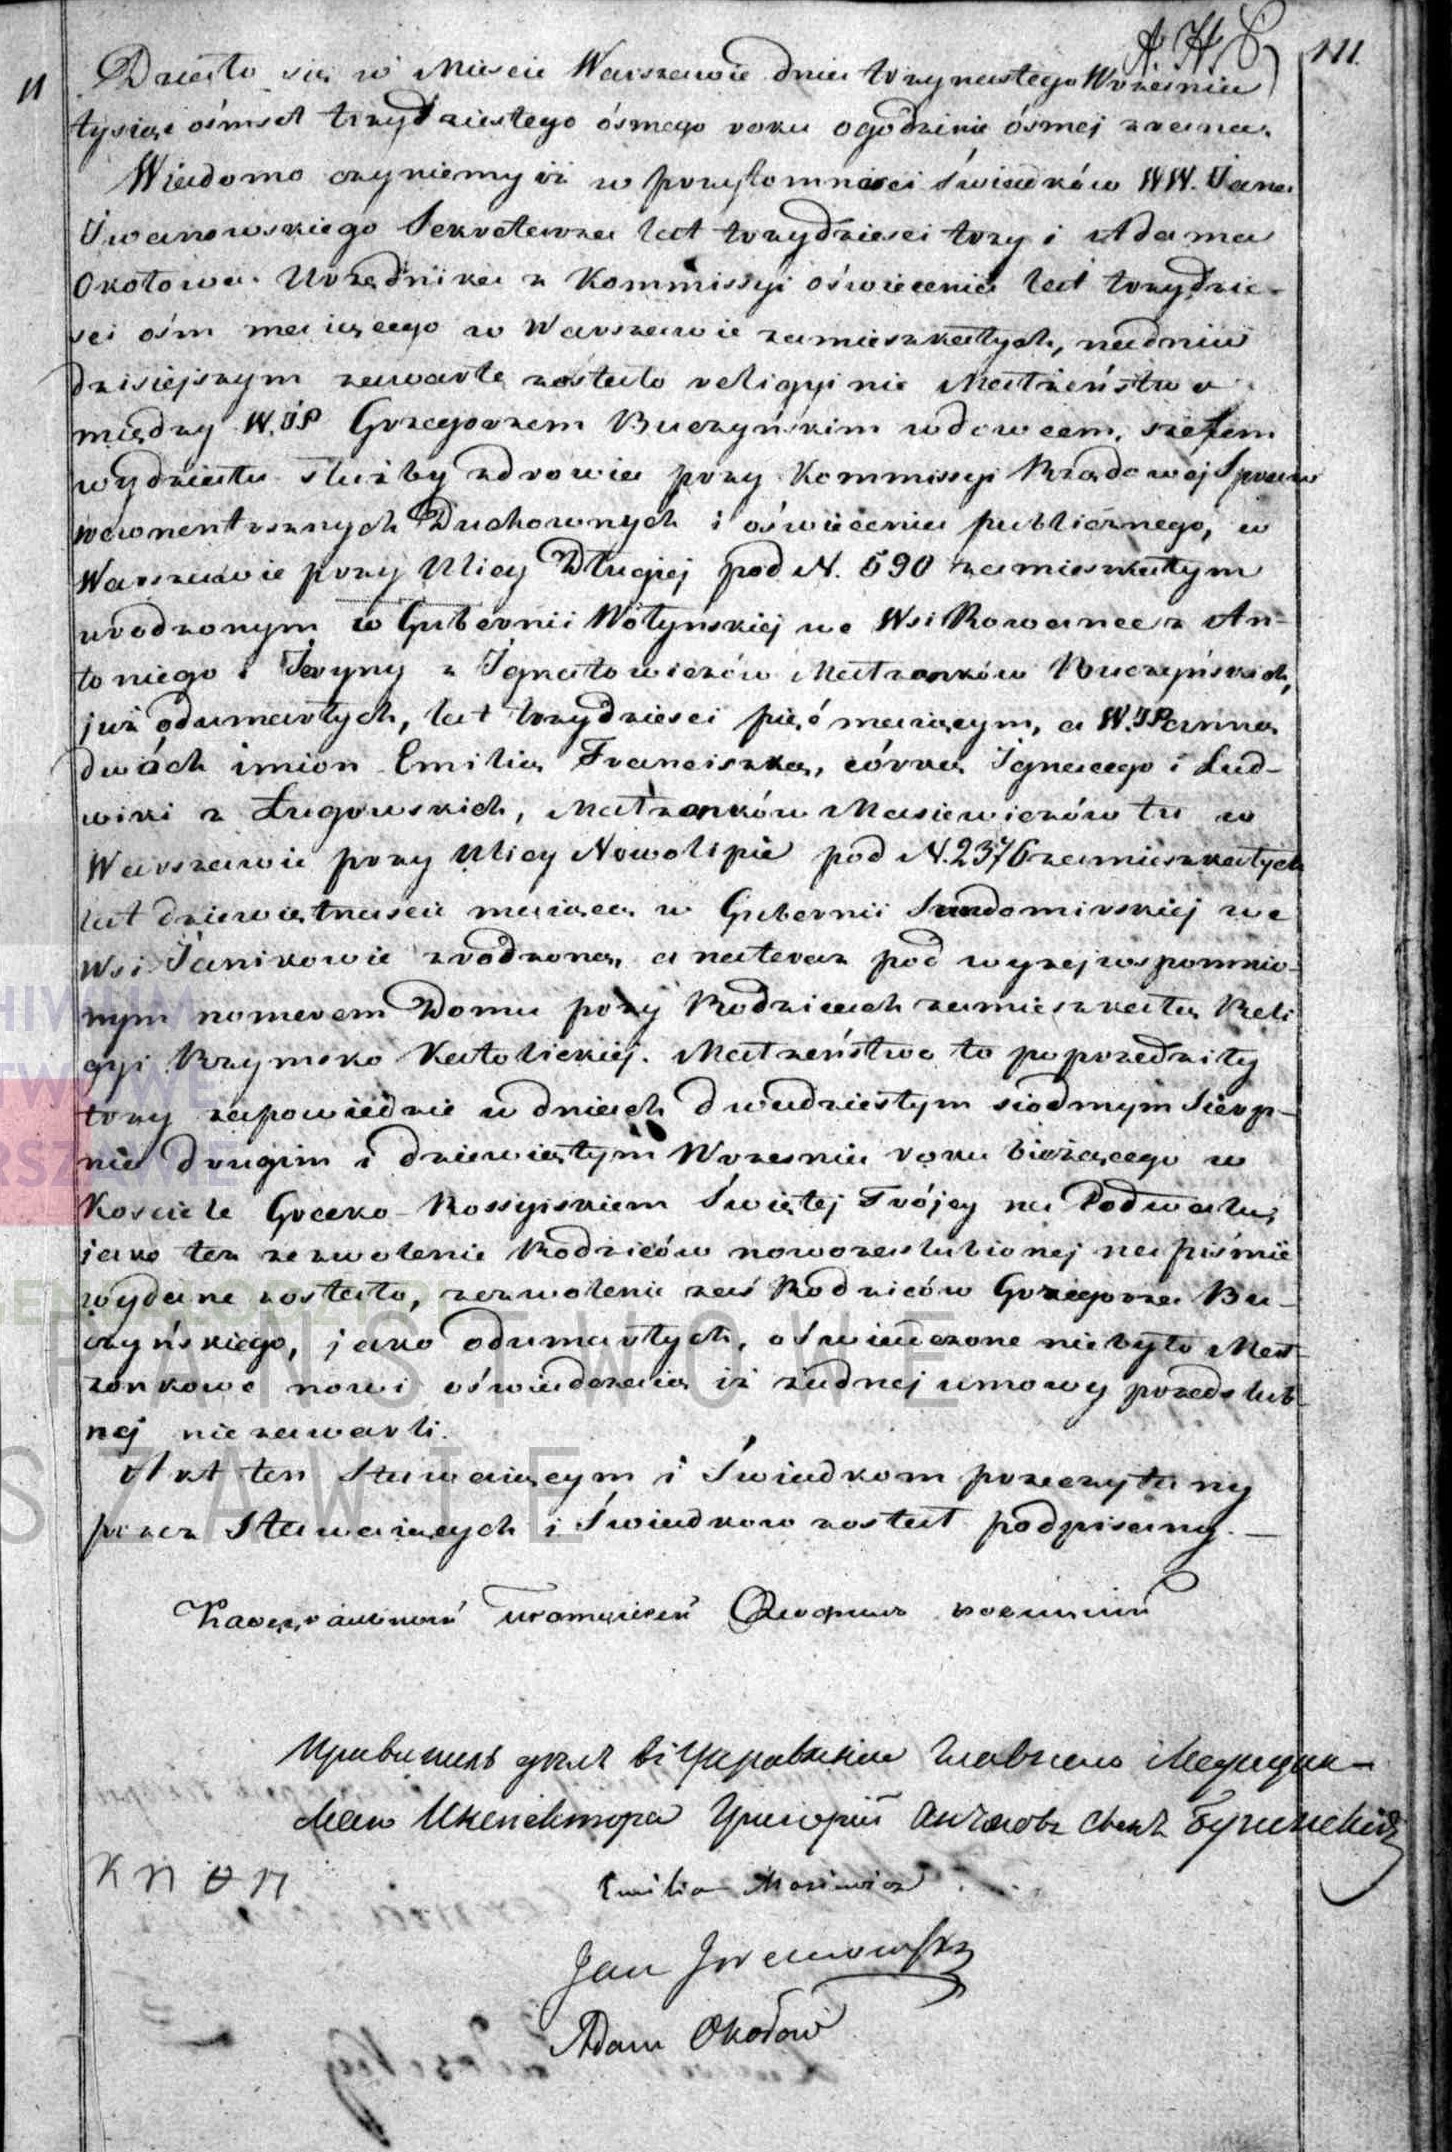 A. H. C.
111.
11
Działo się w Mieście Warszawie dnia trzynastego Wrzesnia
tysiąc ośmset trzydziestego ósmego roku o godzinie ósmej zrana.
Wiadomo czyniemy iż w przytomności świadków WW. Jana
Iwanowskiego Sekretarza lat trzydzieści trzy i Adama
Okołowa Urzędnika z Kommissyi oświecenia lat trzydzie-
sci ośm maiącego w Warszawie zamieszkałych, na dniu
dzisiejszym zawarte zostało religyinie Małżeństwo
między W. JP Grzegorzem Buczyńskim wdowcem, szefem
wydziału służby zdrowia przy Kommissyi Rządowej Spraw
wewnentrznych Duchownych i oświecenia publicznego, w
Warszawie przy Ulicy Długiej pod N. 590 zamieszkałym
urodzonym w Gubernii Wołynskiej we Wsi Rowance z An-
toniego i Jryny z Jgnatowiczów Małżonków Buczyńskich,
już odumarłych, lat trzydzieści pięć maiącym, a W. JPanną
dwóch imion Emilią Franciszką, córką Ignacego i Lud-
wiki z Ługowskich, Małżonków Masiewiczów tu w
Warszawie przy Ulicy Nowolipie pod N. 2376 zamieszkałych
lat dziewiętnascie maiąca w Gubernii Sandomirskiej we
Wsi Janikowie zrodzoną, a na teraz pod wyzej wspomnio-
nym numerem Domu przy Rodzicach zamieszkałą Reli
gyi Rzymsko Katolickiej. Małżeństwo to poprzedziły
trzy zapowiedzie w dniach dwudziestym siódmym Sierp-
nia drugim i dziewiątym Wrzesnia roku bieżącego w
Kosciele Grecko-Rossyiskiem Świętej Trójcy na Podwalu,
jako tez zezwolenie Rodziców nowozaslubionej na piśmie
wydane zostało, zezwolenie zaś Rodziców Grzegorza Bu-
czyńskiego, jako odumarłych, oświadczone niebyło Mał-
zonkowie nowi oświadczaią iż żadnej umowy przedslub-
nej niezawarli.
Akt ten Stawaiącym i Świadkom przeczytany
przez Stawaiących i Świadkow zostal podpisany. —
Инспектора Григорій Антоновъ сынъ Бучинскій
Emilia Masiewicz
Jan Iwanowski
Adam Okołow